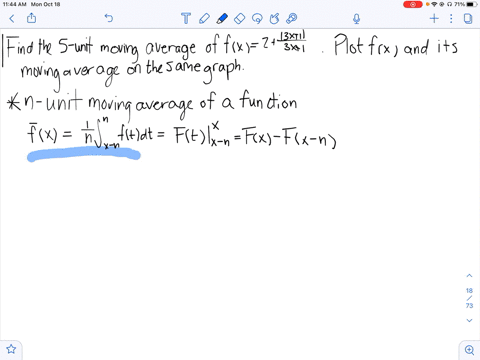 11:44 AM Mon Oct 18
71%
Find the 5-unit moving average of f(x)=2+|3x+1|/3x+1. Plot f(x) and its
moving average on the same graph.
*n-unit moving average of a function
f̄(x) = 1/n ∫_{x-n}^{n} f(t)dt = F(t)|_{x-n}^{x} = F(x)-F(x-n)
18
/
73